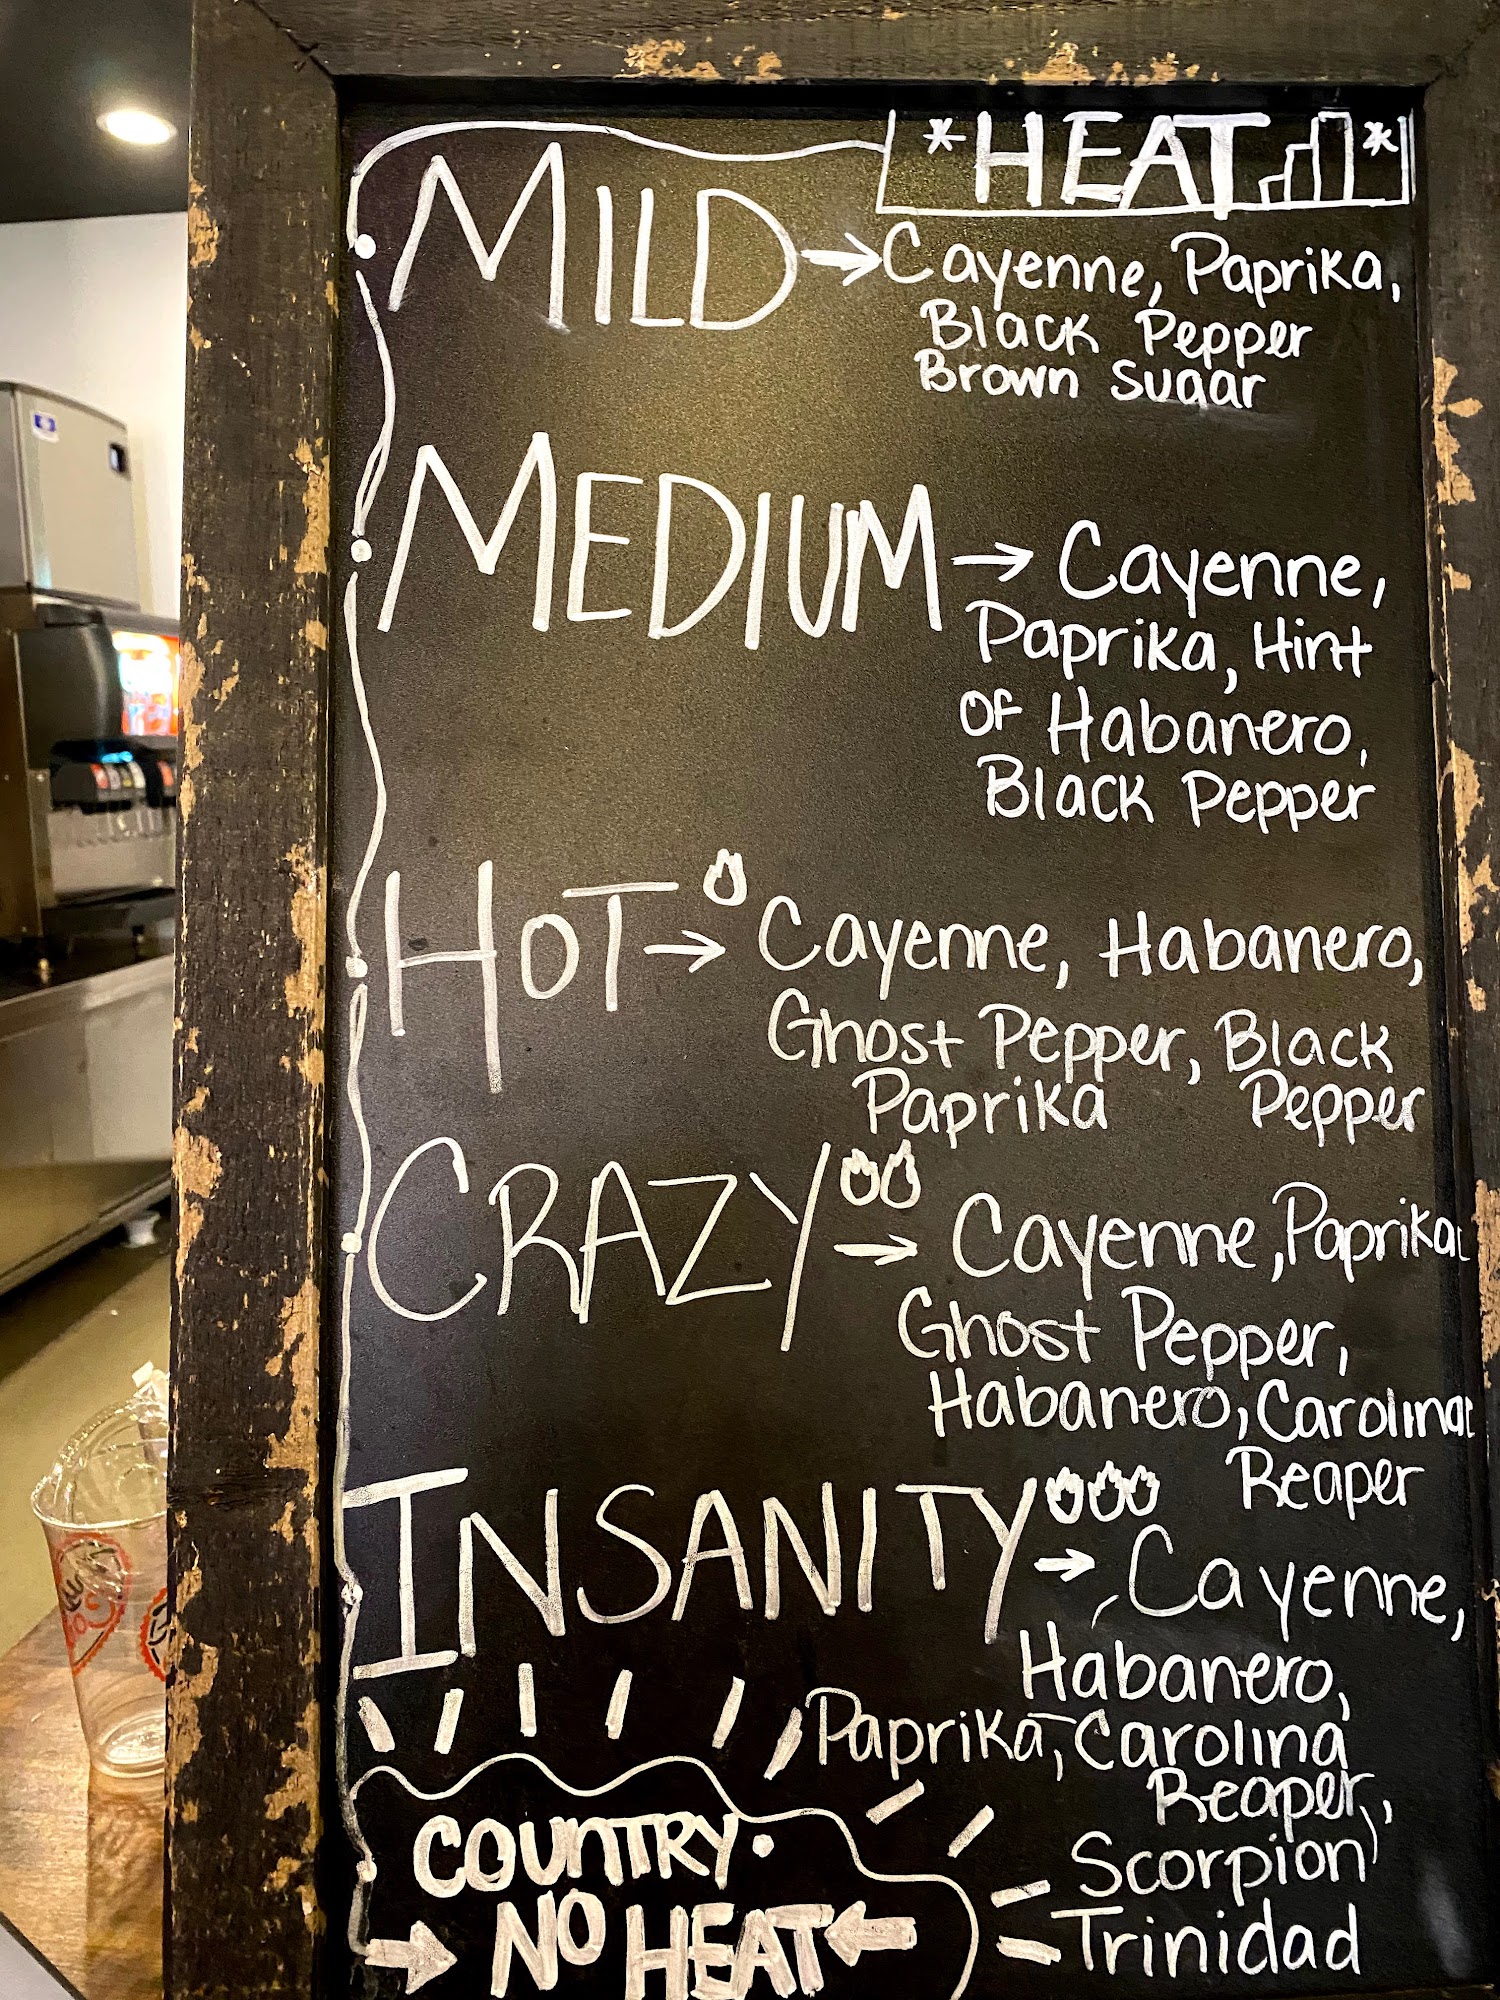 *HEAT*
MILD → Cayenne, Paprika,
Black Pepper
Brown Sugar
MEDIUM → Cayenne,
Paprika, Hint
of Habanero,
Black Pepper
HOT → Cayenne, Habanero,
Ghost Pepper, Black
Paprika Pepper
CRAZY → Cayenne, Paprika
Ghost Pepper,
Habanero, Carolina
Reaper
INSANITY → Cayenne,
Habanero,
Paprika, Carolina
Reaper,
Scorpion
Trinidad
COUNTRY
→ NO HEAT ←